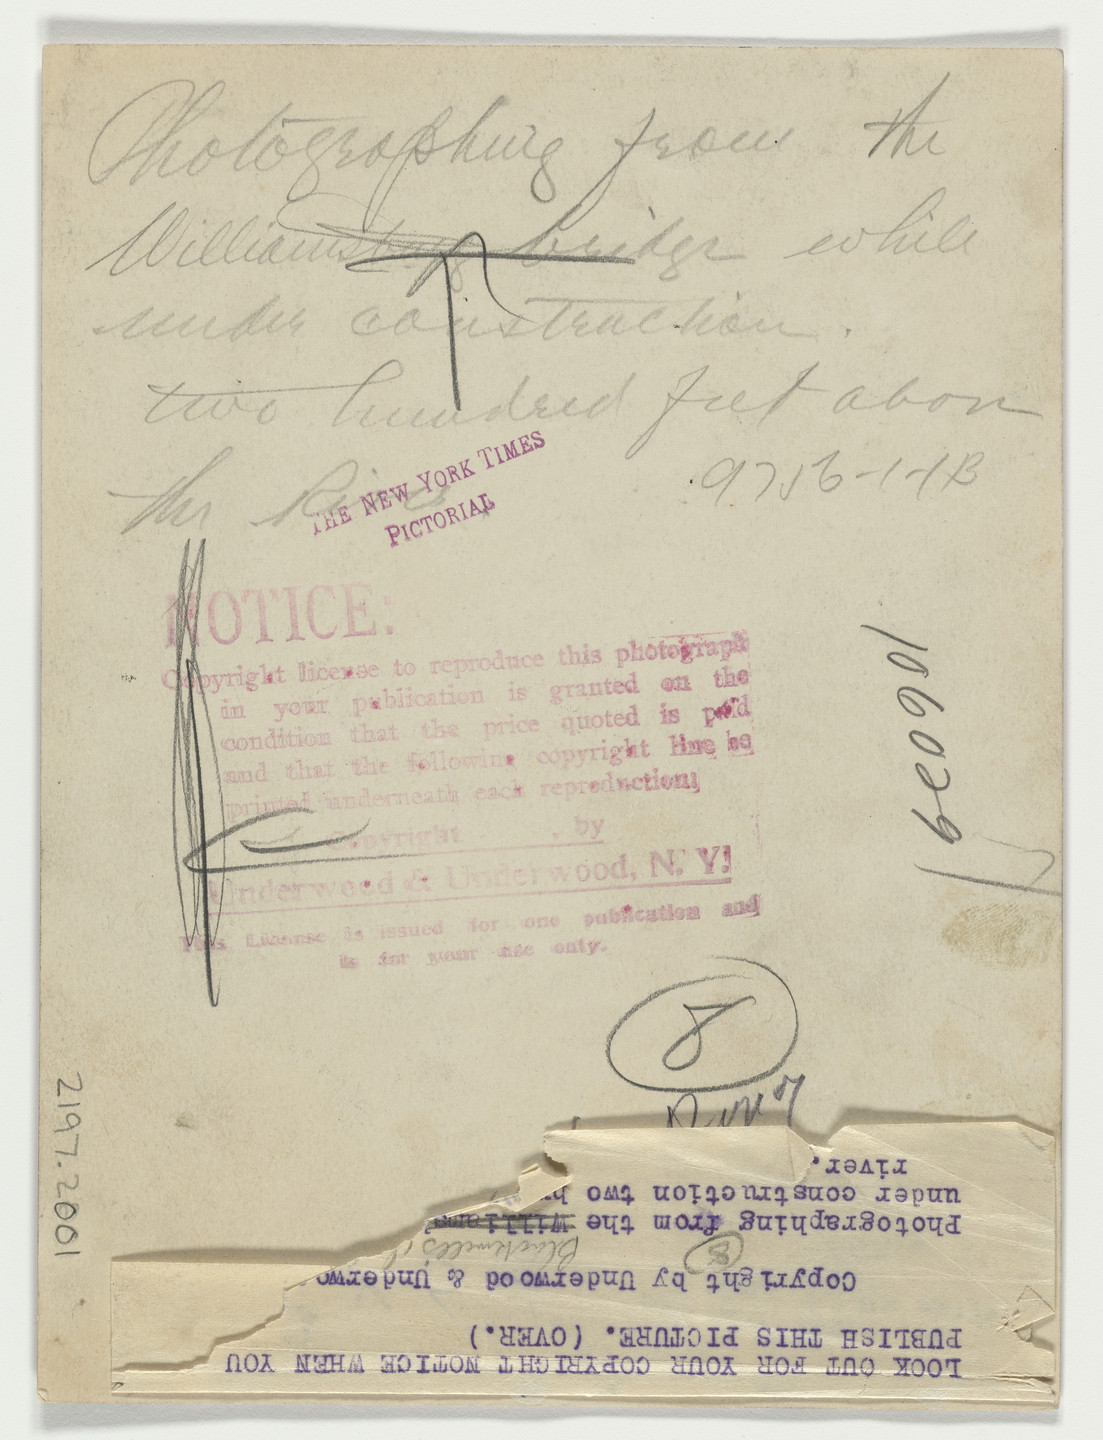 Photographing from the
Williamsburg bridge while
under construction.
two hundred feet above
the River
9756-14B
THE NEW YORK TIMES
PICTORIAL
NOTICE:
Copyright license to reproduce this photograph
in your publication is granted on the
condition that the price quoted is paid
and that the following copyright line be
printed underneath each reproduction;
Copyright , by
Underwood & Underwood, N. Y.
This License is issued for one publication and
is for your use only.
8
2197.2001
LOOK OUT FOR YOUR COPYRIGHT NOTICE WHEN YOU
PUBLISH THIS PICTURE. (OVER.)
Copyright by Underwood & Underwo
8
Blackwell's
Photographing from the Williams
under construction two hu
river.